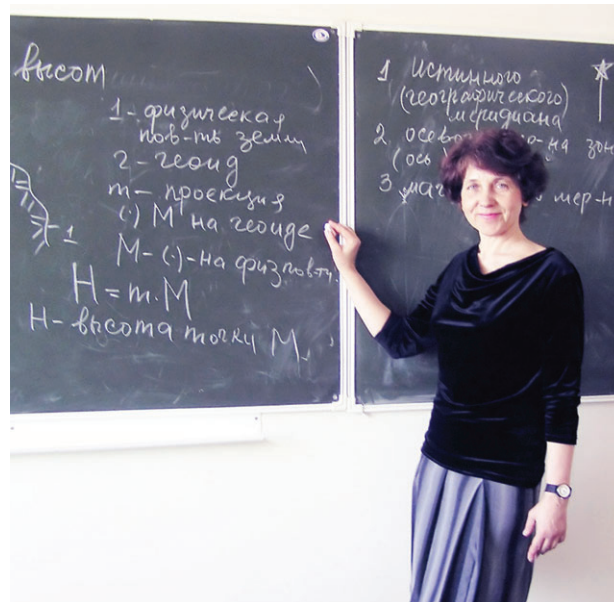 высот
1 - физическая
пов-ть земли
2 - геоид
m - проекция
(·) M на геоиде
M - (·) - на физ пов-ти.
1
H = m.M
H - высота точки M.
1 Истинного
(географического)
меридиана
2. на зон
(ось
3 мер-н